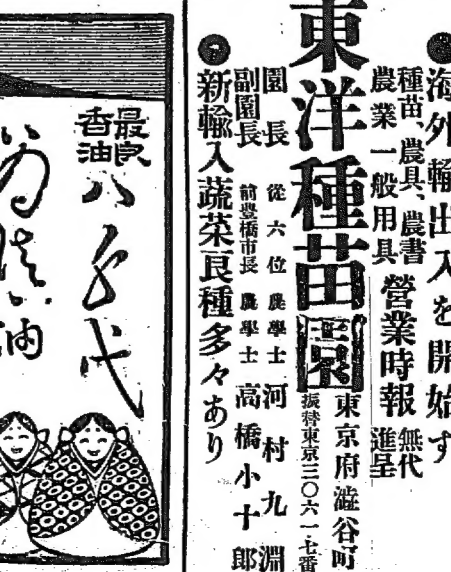 海外輸出入を開始す
種苗、農具、農書
農業一般用具
營業時報
無代
進呈
東洋種苗園
東京府澁谷町
振替東京三〇六一七番
園長 從六位 農學士 河村九淵
副園長 前豊橋市長 農學士 高橋小十郎
新輸入蔬菜良種多々あり
最良
香油
八千代